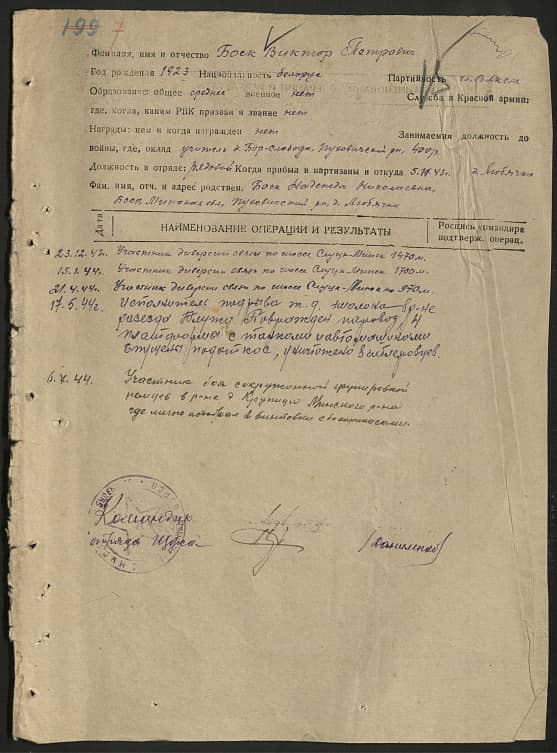 199
Фамилия, имя и отчество Боск Виктор Петрович
Год рождения 1923 Национальность белорус Партийность чл. ВЛКСМ
Образование: общее среднее военное нет Служба в Красной армии:
где, когда, каким РВК призван и звание нет
Награды: кем и когда награжден нет Занимаемая должность до
войны, где, оклад учитель д. Бор-Слобода, Пуховичский рн, 400 р.
Должность в отряде: рядовой Когда прибыл в партизаны и откуда 5.10.43 г. д. Любячка
Фам. имя, отч. и адрес родствен. Боск Надежда Николаевна,
БССР Минская обл, Пуховичский рн, д. Любячка
Дата НАИМЕНОВАНИЕ ОПЕРАЦИИ И РЕЗУЛЬТАТЫ Роспись командира
подтверж. операц.
23.12.43. Участник диверсии связи по шоссе Слуцк-Минск 1470 м.
15.1.44г. Участник диверсии связи по шоссе Слуцк-Минск 1700 м.
21.4.44г. Участник диверсии связи по шоссе Слуцк-Минск 950 м.
17.5.44г. Исполнитель подрыва ж.д. эшелона в р-не
разезда Поврежден паровоз, 4
платформы с танками и автомашинами
пущены под откос, уничтожено 8 гитлеровцев.
6.7.44. Участник боя с окруженной групировкой
немцев в р-не д. Крупица Минского р-на
где лично винтовки с боеприпасами.
Командир
отряда Щорса